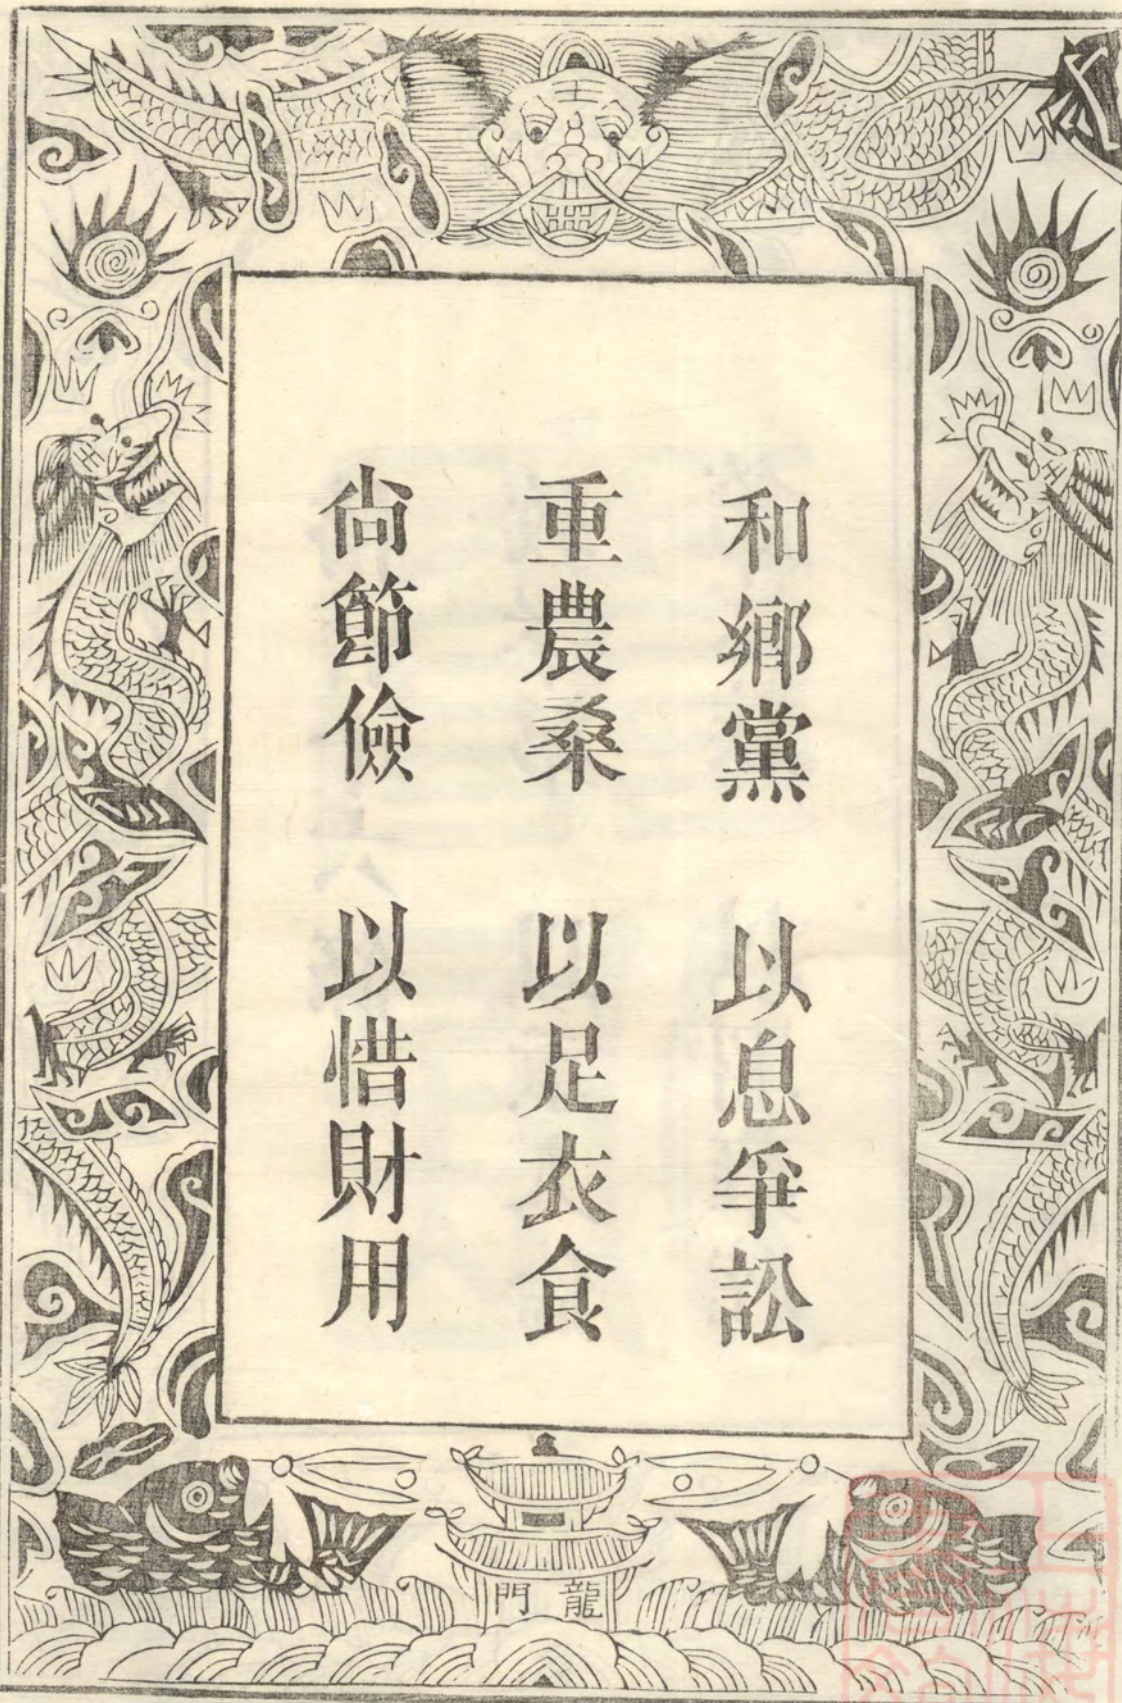 和鄉黨 以息爭訟
重農桑 以足衣食
尙節儉 以惜財用
龍門